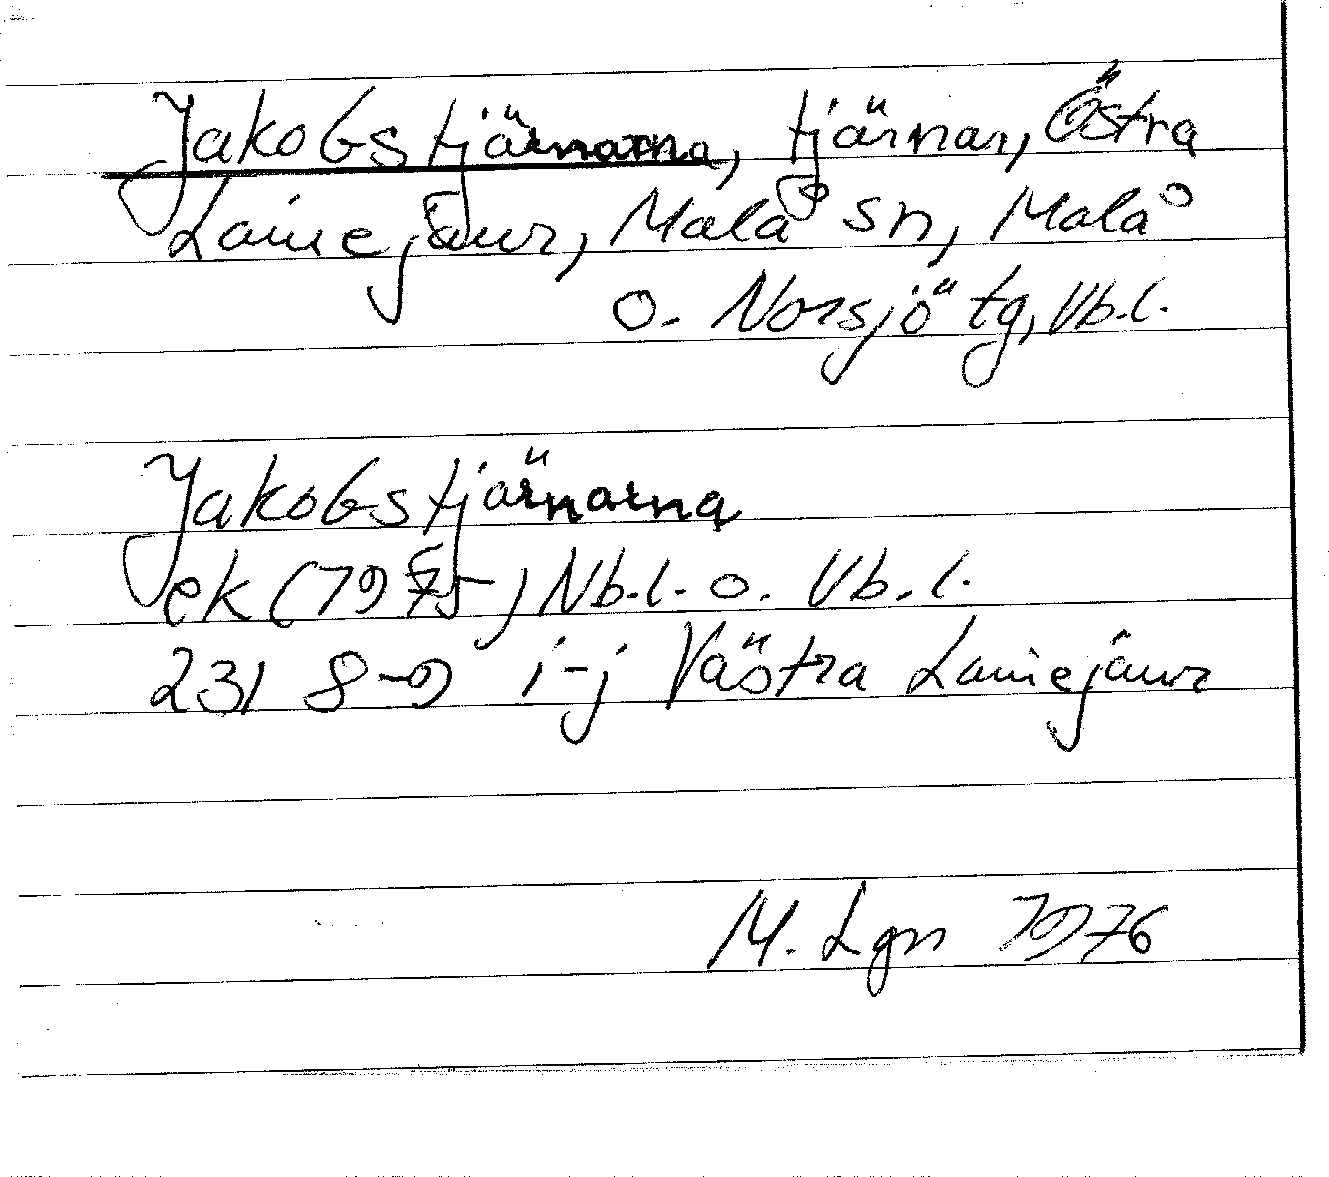 Jakobstjärnarna, tjärnar, Östra
Lainejaur, Malå sn, Malå
o. Norsjö tg, Vb.l.
Jakobstjärnarna
ek (1975) Nb.l. o. Vb.l.
231 8-9 i-j Västra Lainejaur
M. Lgn 1976